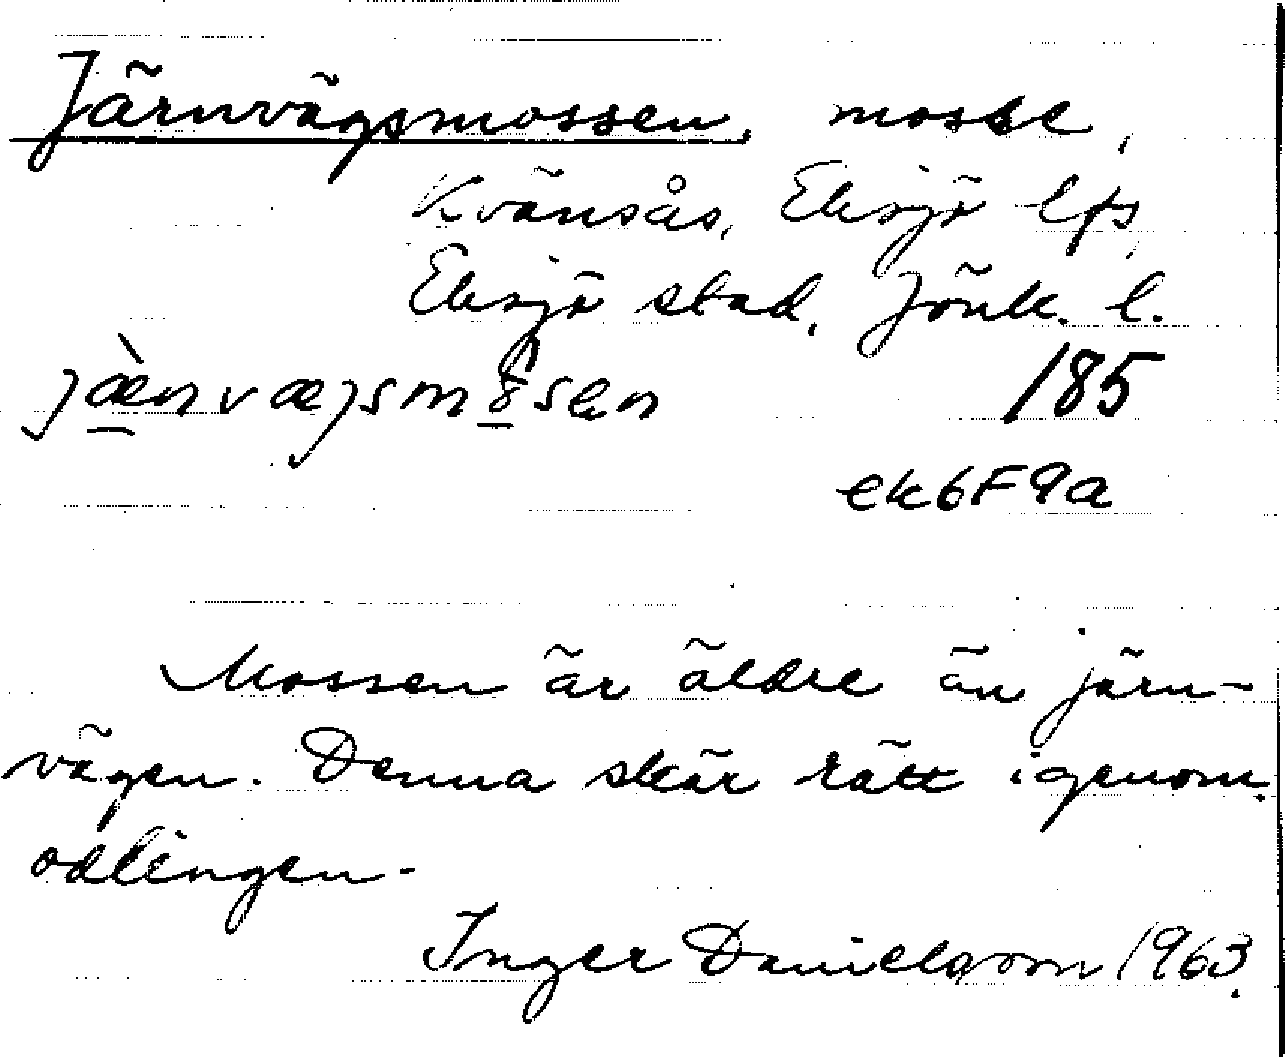 Järnvägsmossen, mosse,
Kvänsås, Eksjö lfs,
Eksjö stad, Jönk. l.
185
ek6F9a
Mossen är äldre än järn-
vägen. Denna skär rätt igenom
odlingen.
Inger Danielsson 1963.